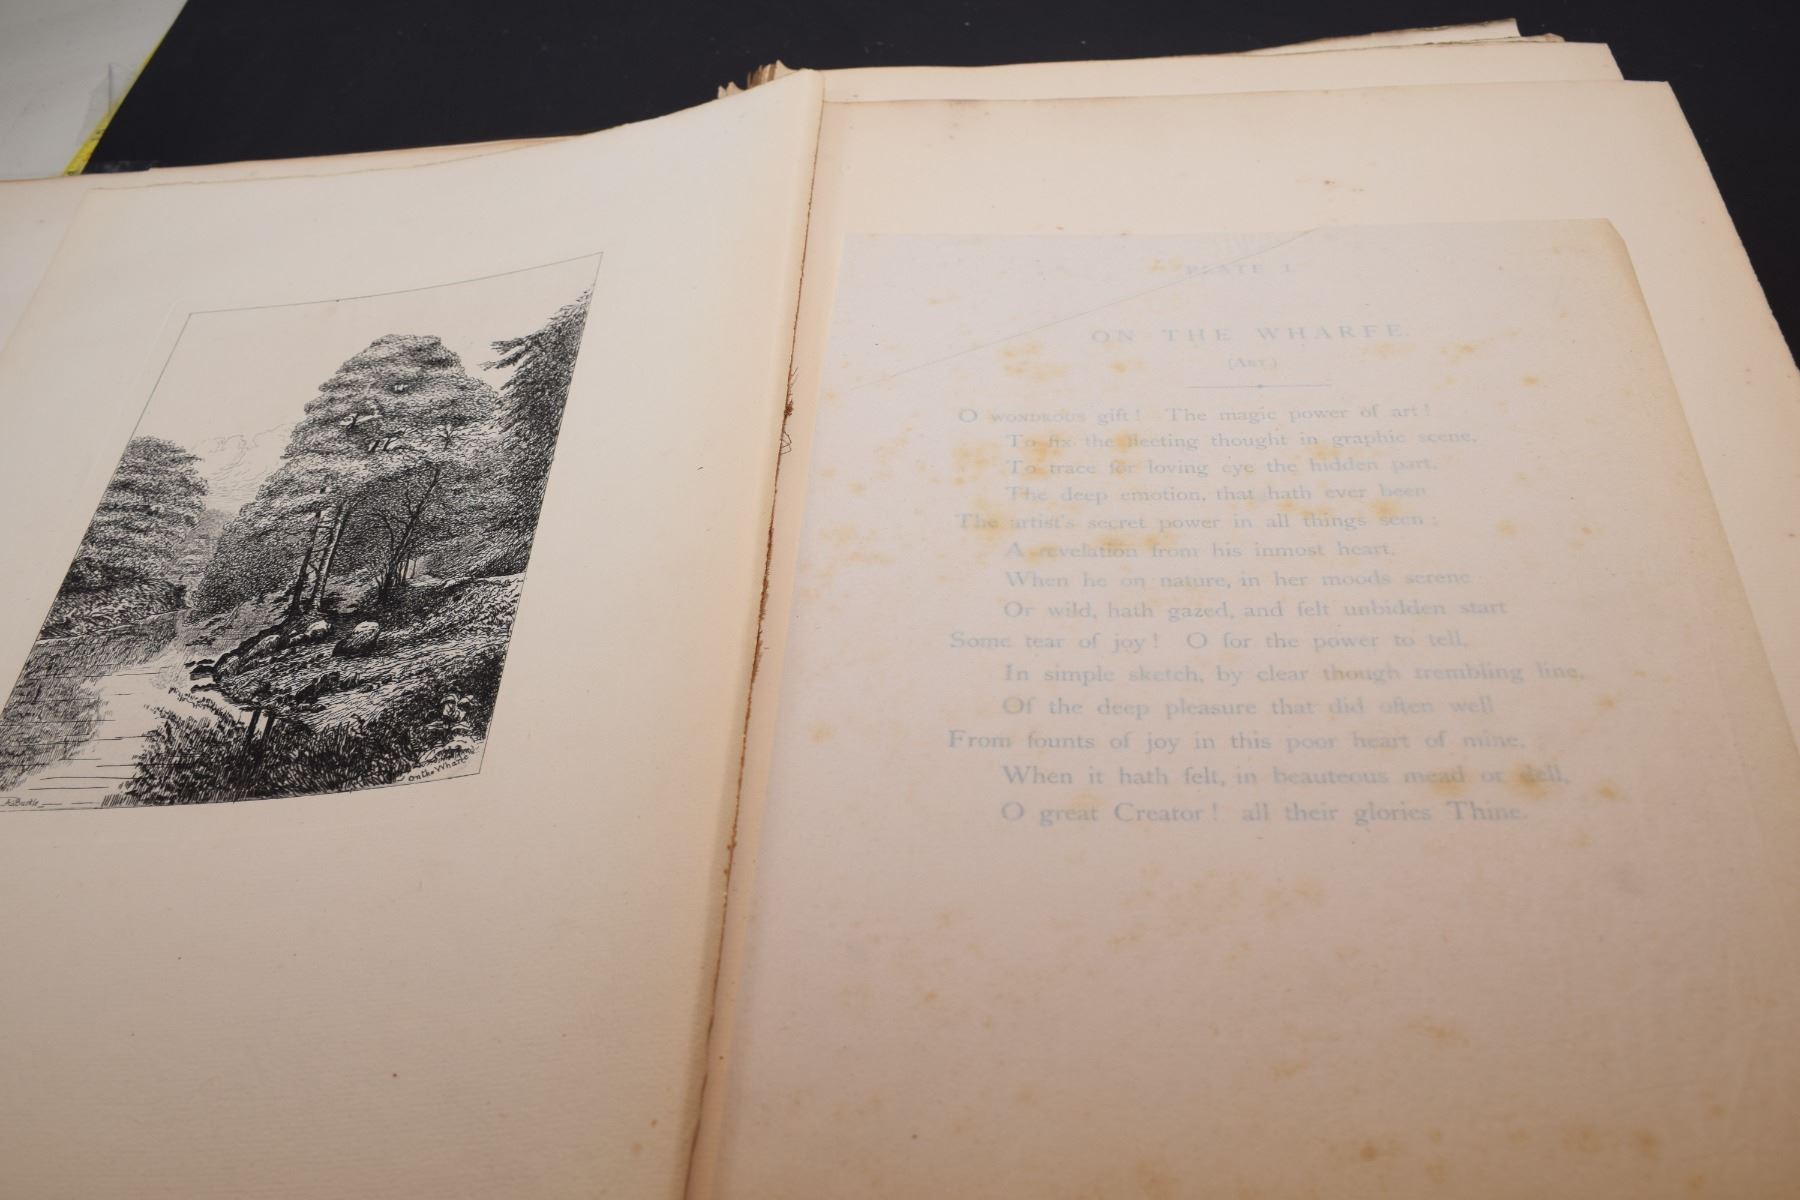 On the Wharfe
PLATE I.
ON THE WHARFE.
(ART.)
O WONDROUS gift! The magic power of art!
To fix the fleeting thought in graphic scene,
To trace for loving eye the hidden part,
The deep emotion, that hath ever been
The artist's secret power in all things seen:
A revelation from his inmost heart,
When he on nature, in her moods serene
Or wild, hath gazed, and felt unbidden start
Some tear of joy! O for the power to tell,
In simple sketch, by clear though trembling line,
Of the deep pleasure that did often well
From founts of joy in this poor heart of mine,
When it hath felt, in beauteous mead or dell,
O great Creator! all their glories Thine.